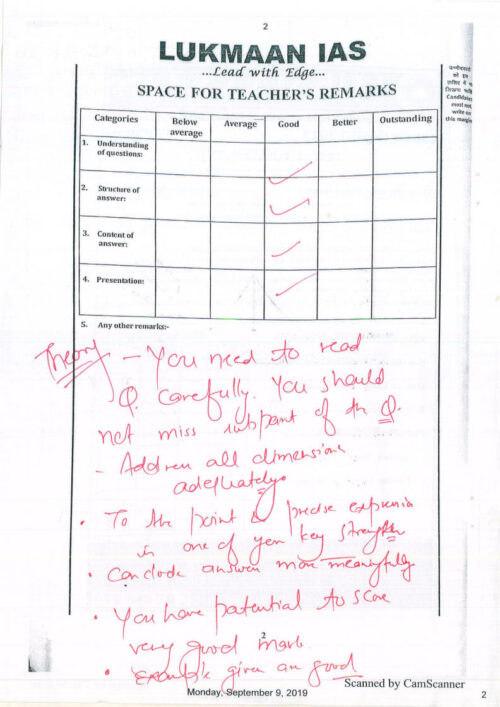 2
LUKMAAN IAS
...Lead with Edge...
SPACE FOR TEACHER'S REMARKS
उम्मीदवारों
को इस
Candidates
must not
write on
this margin
Categories Below average Average Good Better Outstanding
1. Understanding of questions:
2. Structure of answer:
3. Content of answer:
4. Presentation:
5. Any other remarks:-
Theory - You need to read
Q. carefully. You should
not miss subpart of the Q.
- Address all dimensions
adequately.
• To the point & precise expression
is one of your key strength
• Conclude answer more meaningfully
• You have potential to score
very good mark.
2
• Example given are good
Monday, September 9, 2019
Scanned by CamScanner
2